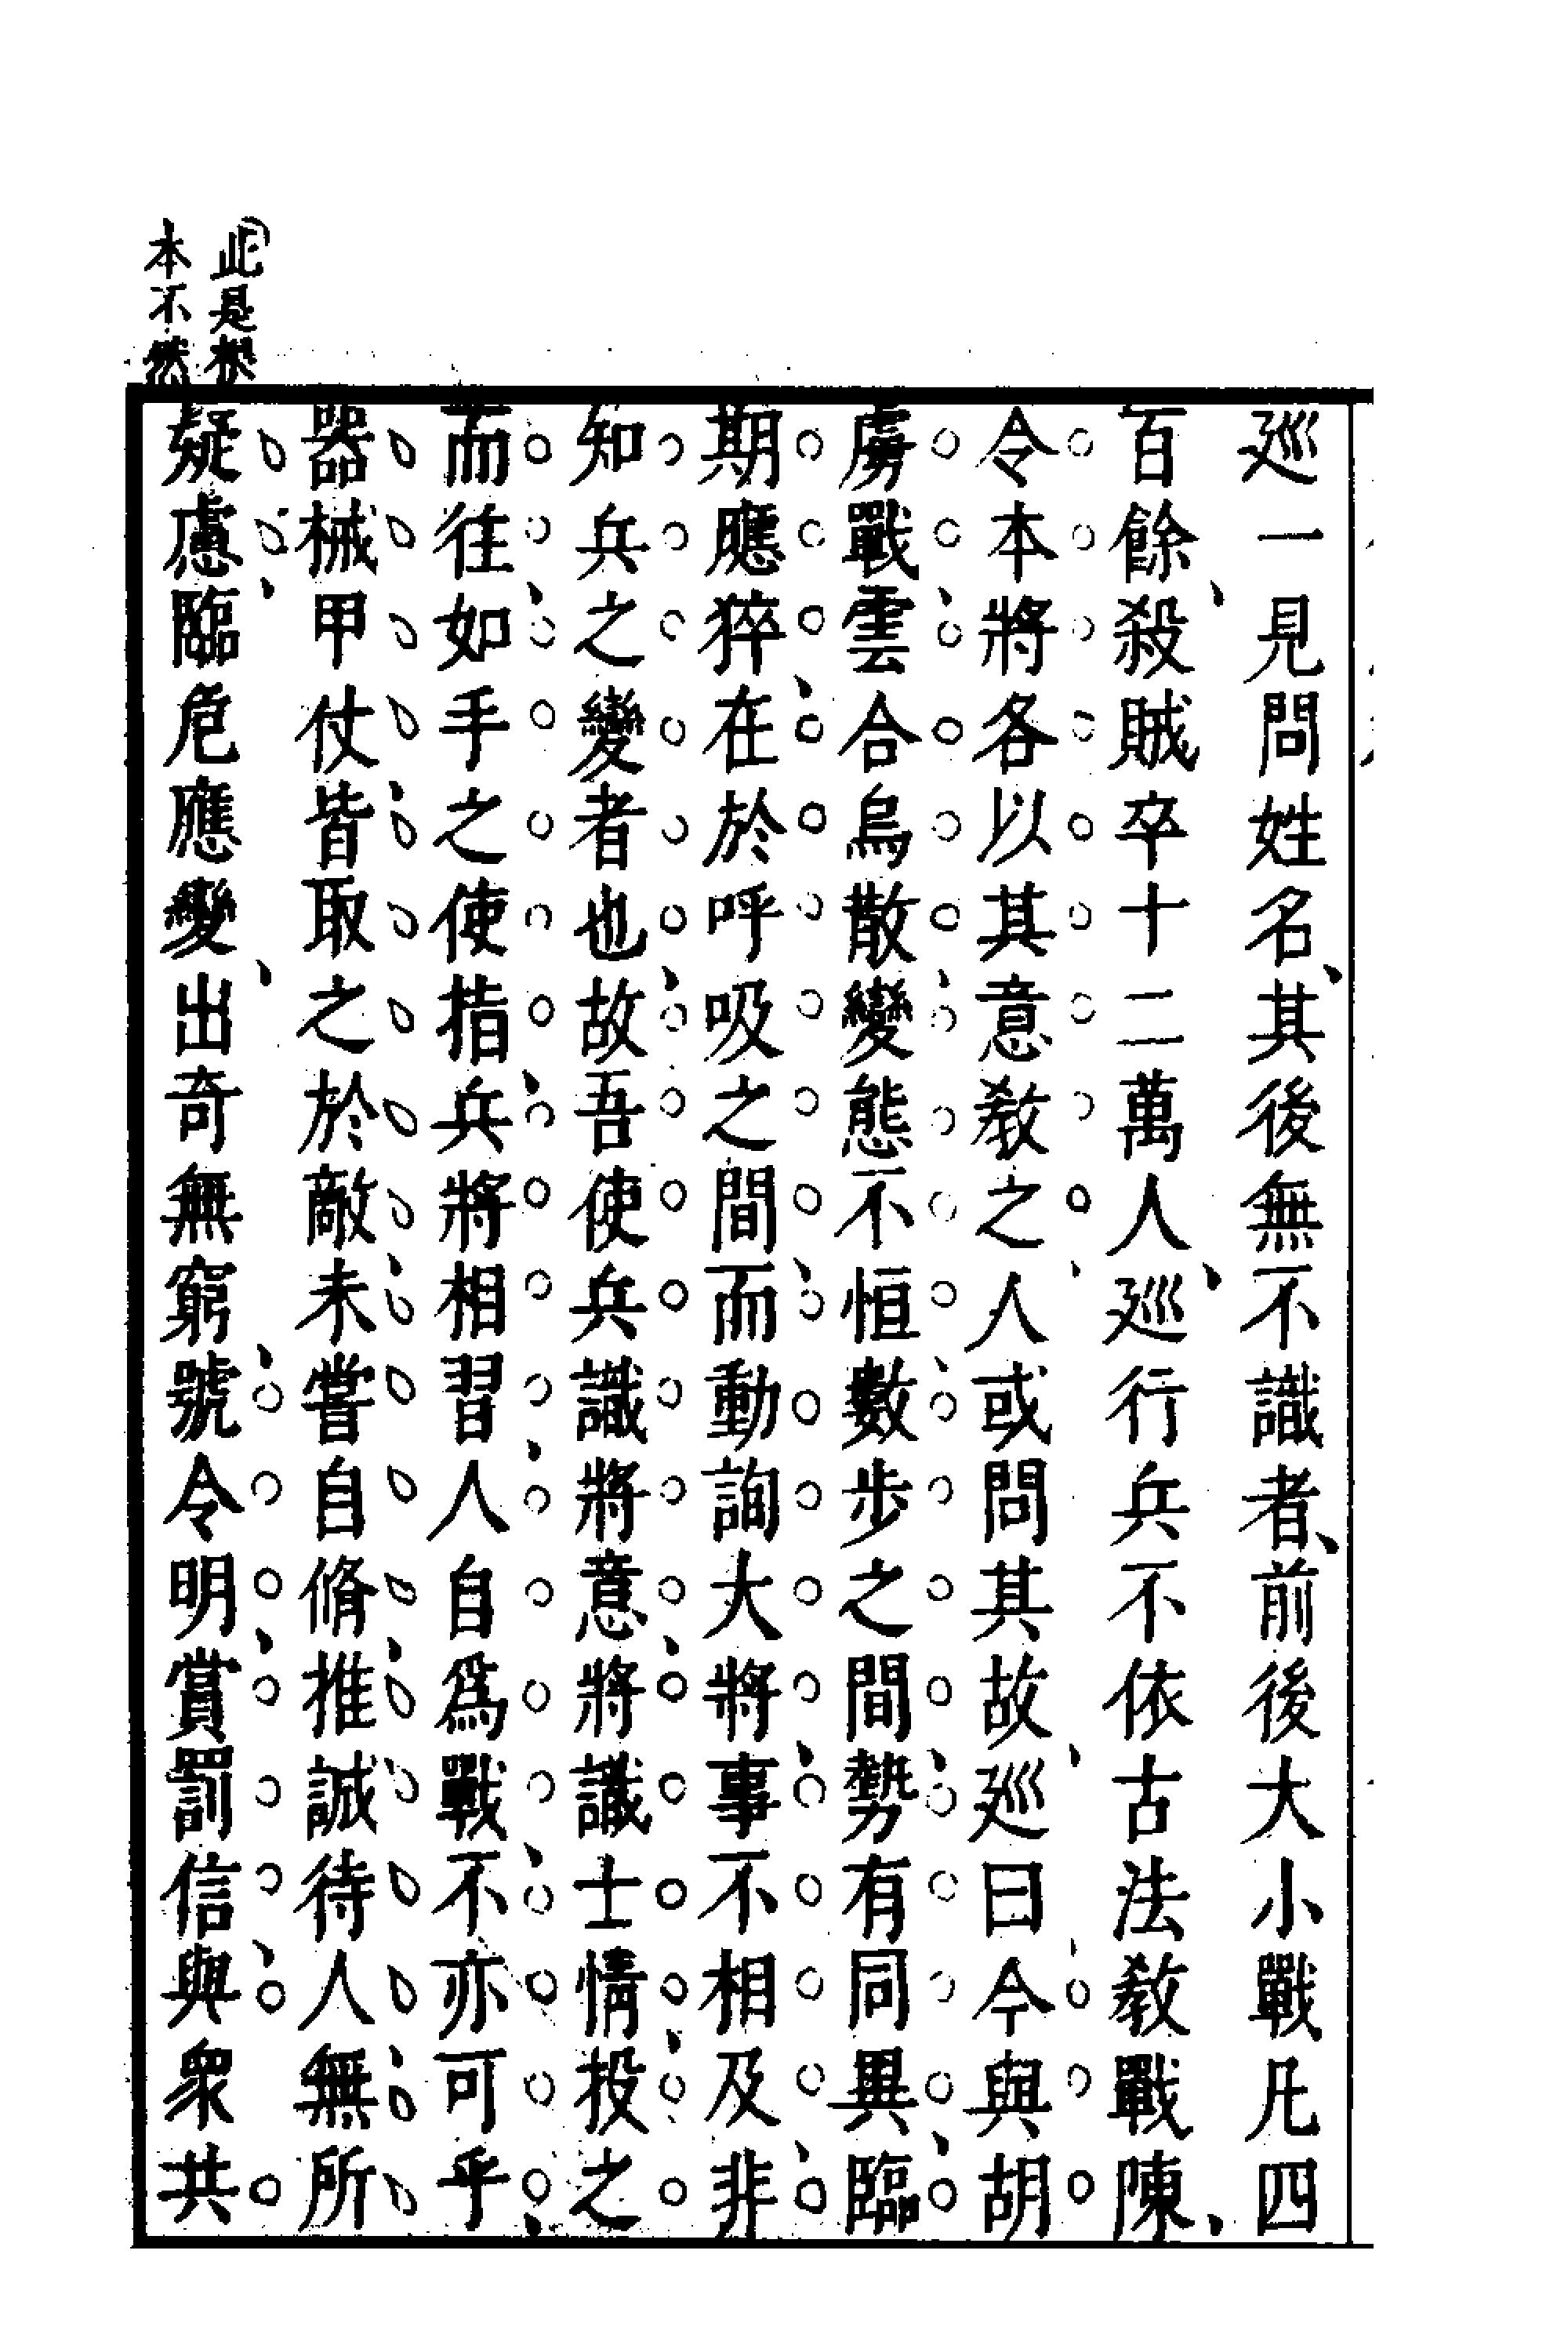 巡一見問姓名其後無不識者前後大小戰凡四
百餘殺賊卒十二萬人巡行兵不依古法教戰陳
令本將各以其意教之人或問其故巡曰今與胡
虜戰雲合鳥散變態不恒數步之間勢有同異臨
期應猝在於呼吸之間而動詢大將事不相及非
知兵之變者也故吾使兵識將意將識士情投之
而往如手之使指兵將相習人自爲戰不亦可乎
器械甲仗皆取之於敵未嘗自脩推誠待人無所
疑慮臨危應變出奇無窮號令明賞罰信與衆共
此是根
本不然